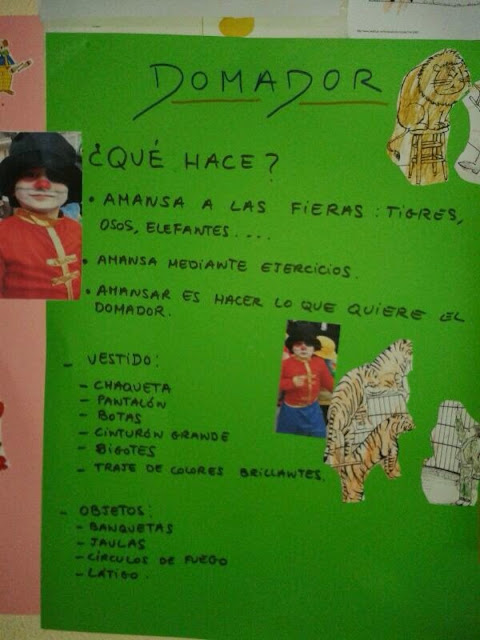 DOMADOR
¿QUÉ HACE?
• AMANSA A LAS FIERAS: TIGRES,
OSOS, ELEFANTES....
• AMANSA MEDIANTE EJERCICIOS.
• AMANSAR ES HACER LO QUE QUIERE EL
DOMADOR.
- VESTIDO:
- CHAQUETA
- PANTALÓN
- BOTAS
- CINTURÓN GRANDE
- BIGOTES
- TRAJE DE COLORES BRILLANTES.
- OBJETOS:
- BANQUETAS
- JAULAS
- CÍRCULOS DE FUEGO
- LÁTIGO.